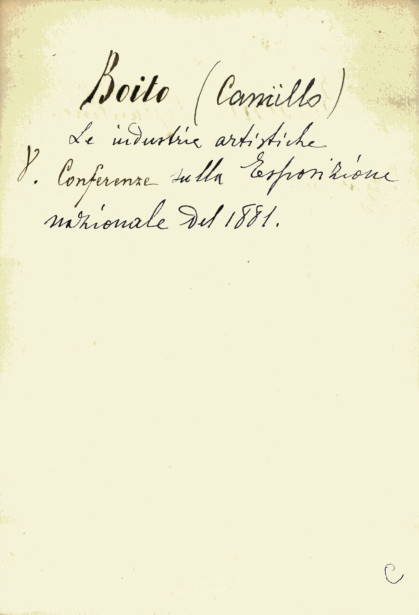 Boito (Camillo)
Le industrie artistiche
V. Conferenze sulla Esposizione
nazionale del 1881.
C